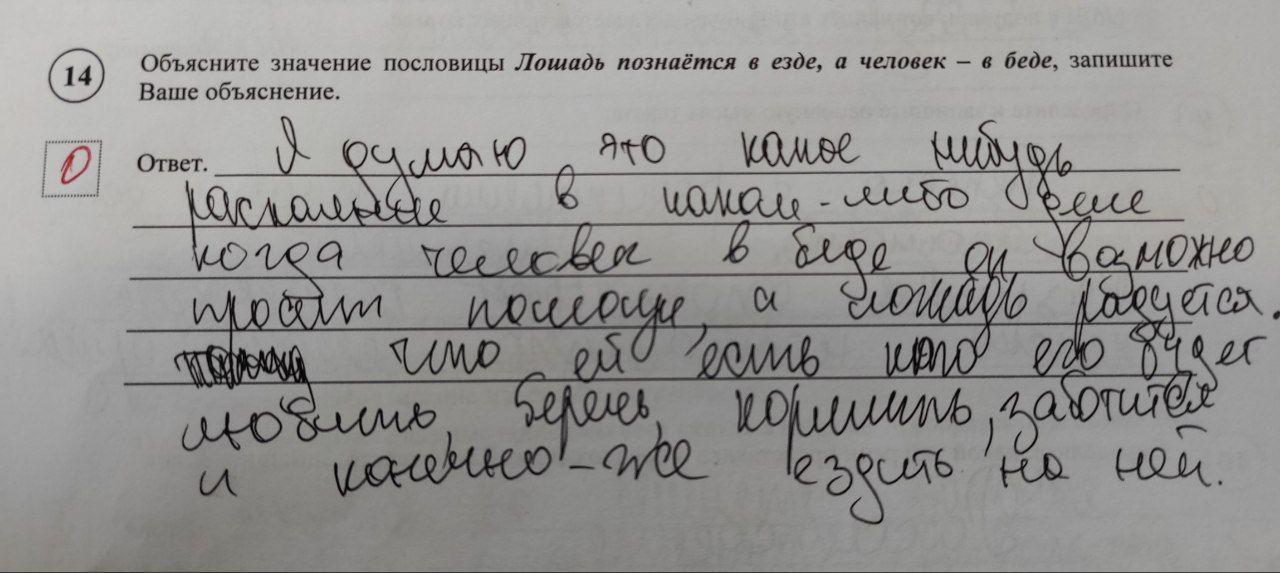 14 Объясните значение пословицы Лошадь познаётся в езде, а человек – в беде, запишите
Ваше объяснение.
0 Ответ. Я думаю это какое нибудь
в каком-либо деле
когда человек в беде он возможно
просит помощи, а лошадь радуется.
что ей есть кто его будет
любить, беречь, кормить, заботится
и конечно-же ездить на ней.